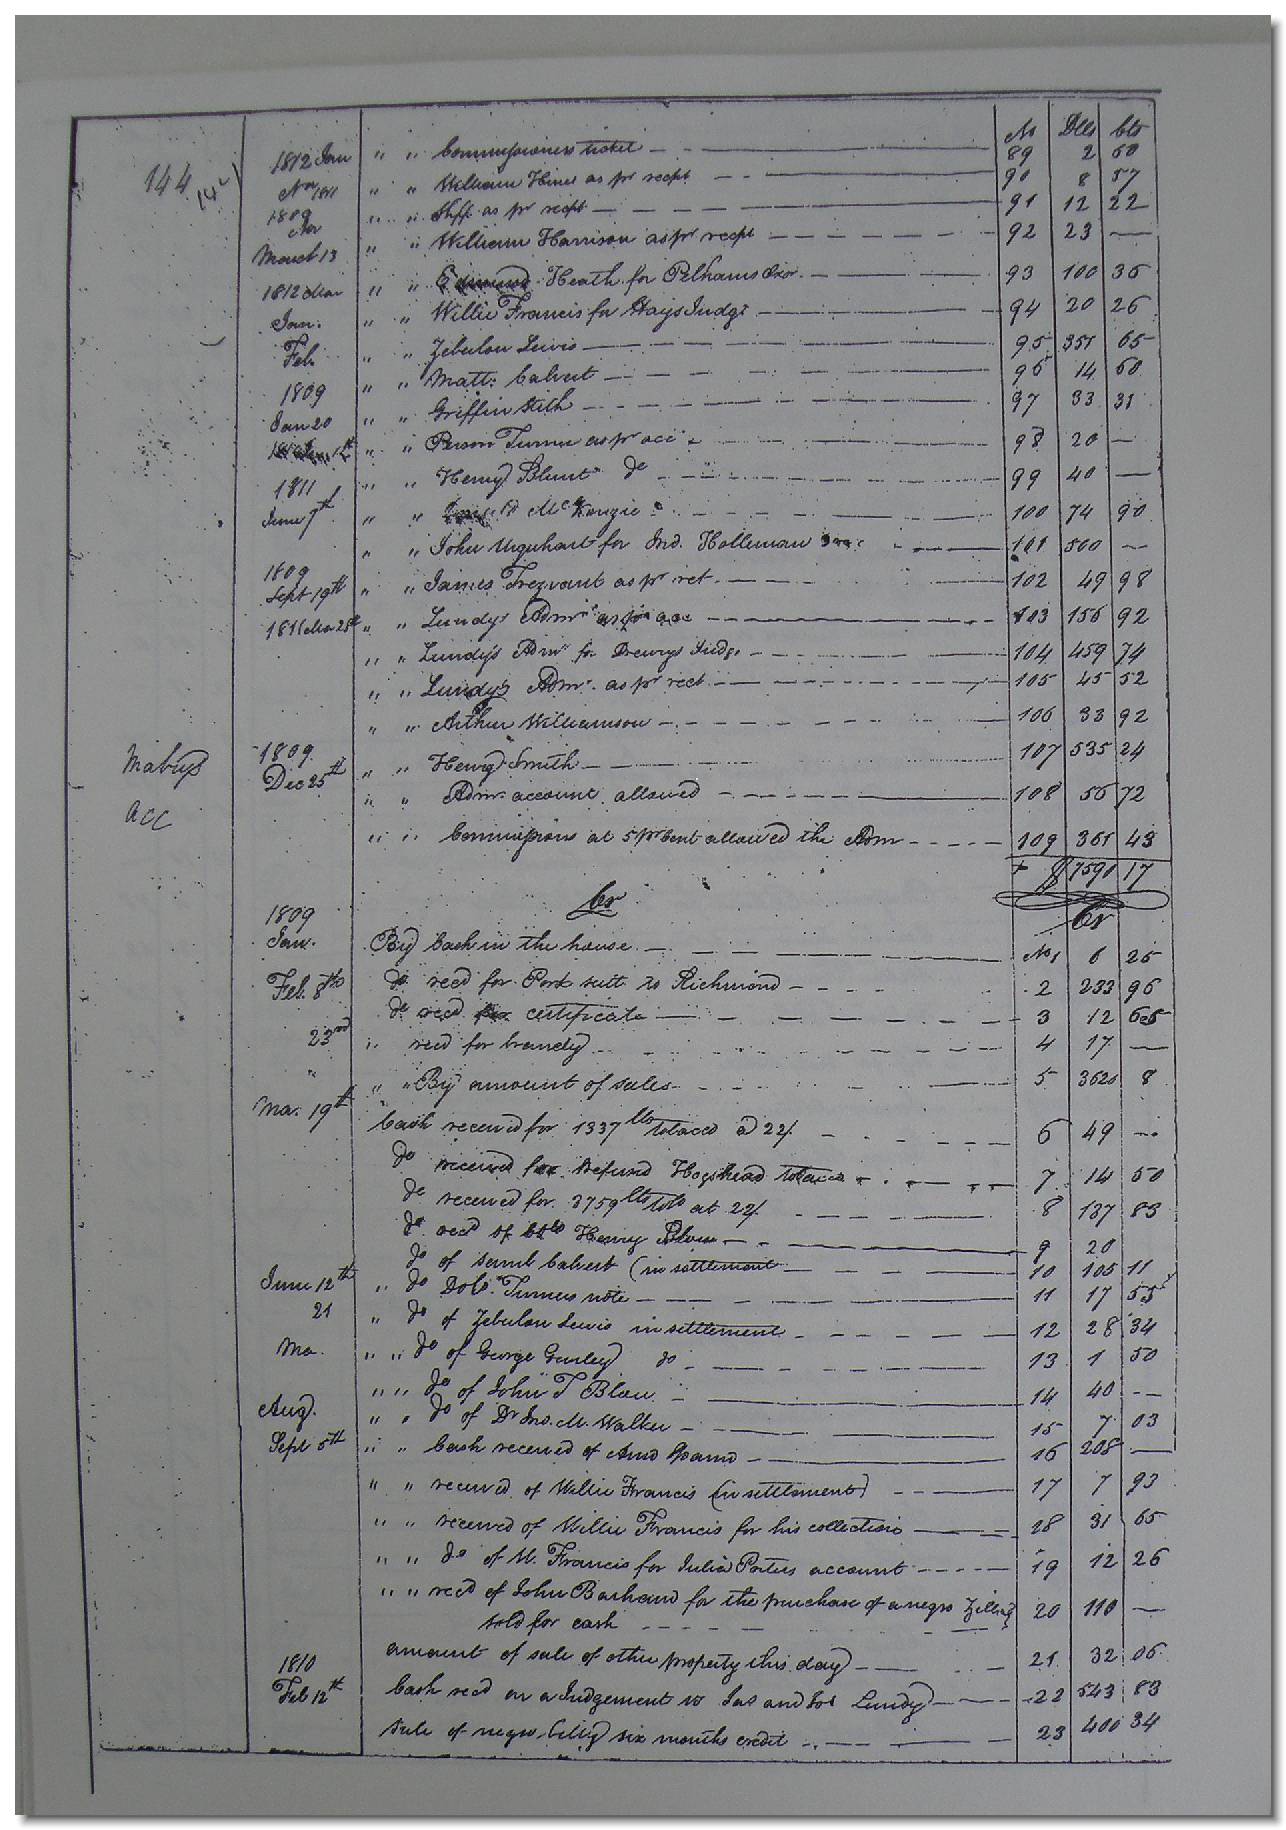 No Dlls Cts
144 142
1812 Jan " " Commissioners ticket 89 2 60
Nov 1811 " " William Hines as pr recpt 90 8 57
1809 " " Shff as pr recpt 91 12 22
Mar " " William Harrison as pr recpt 92 23
March 13
1812 Mar " " Edmund Heath for Pelhams Exor. 93 100 36
Jan. " " Willie Francis for Hays Judgt 94 20 26
Feb. " " Zebulon Lewis 95 351 65
" " Matt: Calvert 96 14 60
1809 " " Griffin Stith 97 33 31
Jan 20 " " Person Turner as pr acc 98 20
12th
1811 " " Henry Blunt do 99 40
June 7th " " McKenzie 100 74 90
" " John Urquhart for Jno. Holleman 101 500
1809
Sept 19th " " James Trezvant as pr ret. 102 49 98
1811 Mar 28th " " Lundys Admr as pr acc 103 156 92
" " Lundy's Admr for Drewrys Judgt 104 459 74
" " Lundy's Admr. as pr rect 105 45 52
" " Arthur Williamson 106 33 92
Mabrys 1809 " " Henry Smith 107 535 24
Dec 25th " " Admr account allowed 108 56 72
acc
" " Commissions at 5 pr Cent allowed the Adm 109 361 43
$ 7590 17
Cr Cr
1809
Jan. By Cash in the house No 1 6 25
Feb. 8th do recd for Pork sent to Richmond 2 233 96
do recd for certificate 3 12
23rd " recd for brandy 4 17
" " " By amount of sales 5 3620 8
Mar. 19th Cash received for 1337 lbs tobacco @ 22/ 6 49
do received for Refund Hogshead tobacco 7 14 50
do received for 3759 lbs tobo at 22/ 8 137 83
do recd of Henry Blow 9 20
do of Saml Calvert (in settlement 10 105 11
June 12th " do Turners note 11 17 55
21 " do of Zebulon Lewis in settlement 12 28 34
Ma. " " do of George Gurley do 13 1 50
" " do of John T Blow 14 40
Aug. " " do of Dr Jno. M. Walker 15 7 03
Sept 5th " " Cash received of 16 208
" " received of Willie Francis (in settlement) 17 7 93
" " received of Willie Francis for his collections 18 31 65
" " do of W. Francis for Julia Porters account 19 12 26
" " recd of John Barham for the purchase of a negro 20 110
sold for cash
1810 amount of sale of other property this day 21 32 06
Feb 12th Cash recd on a Judgement vs Jas and Lundy 22 543 83
Sale of negro Billy six months credit 23 400 34